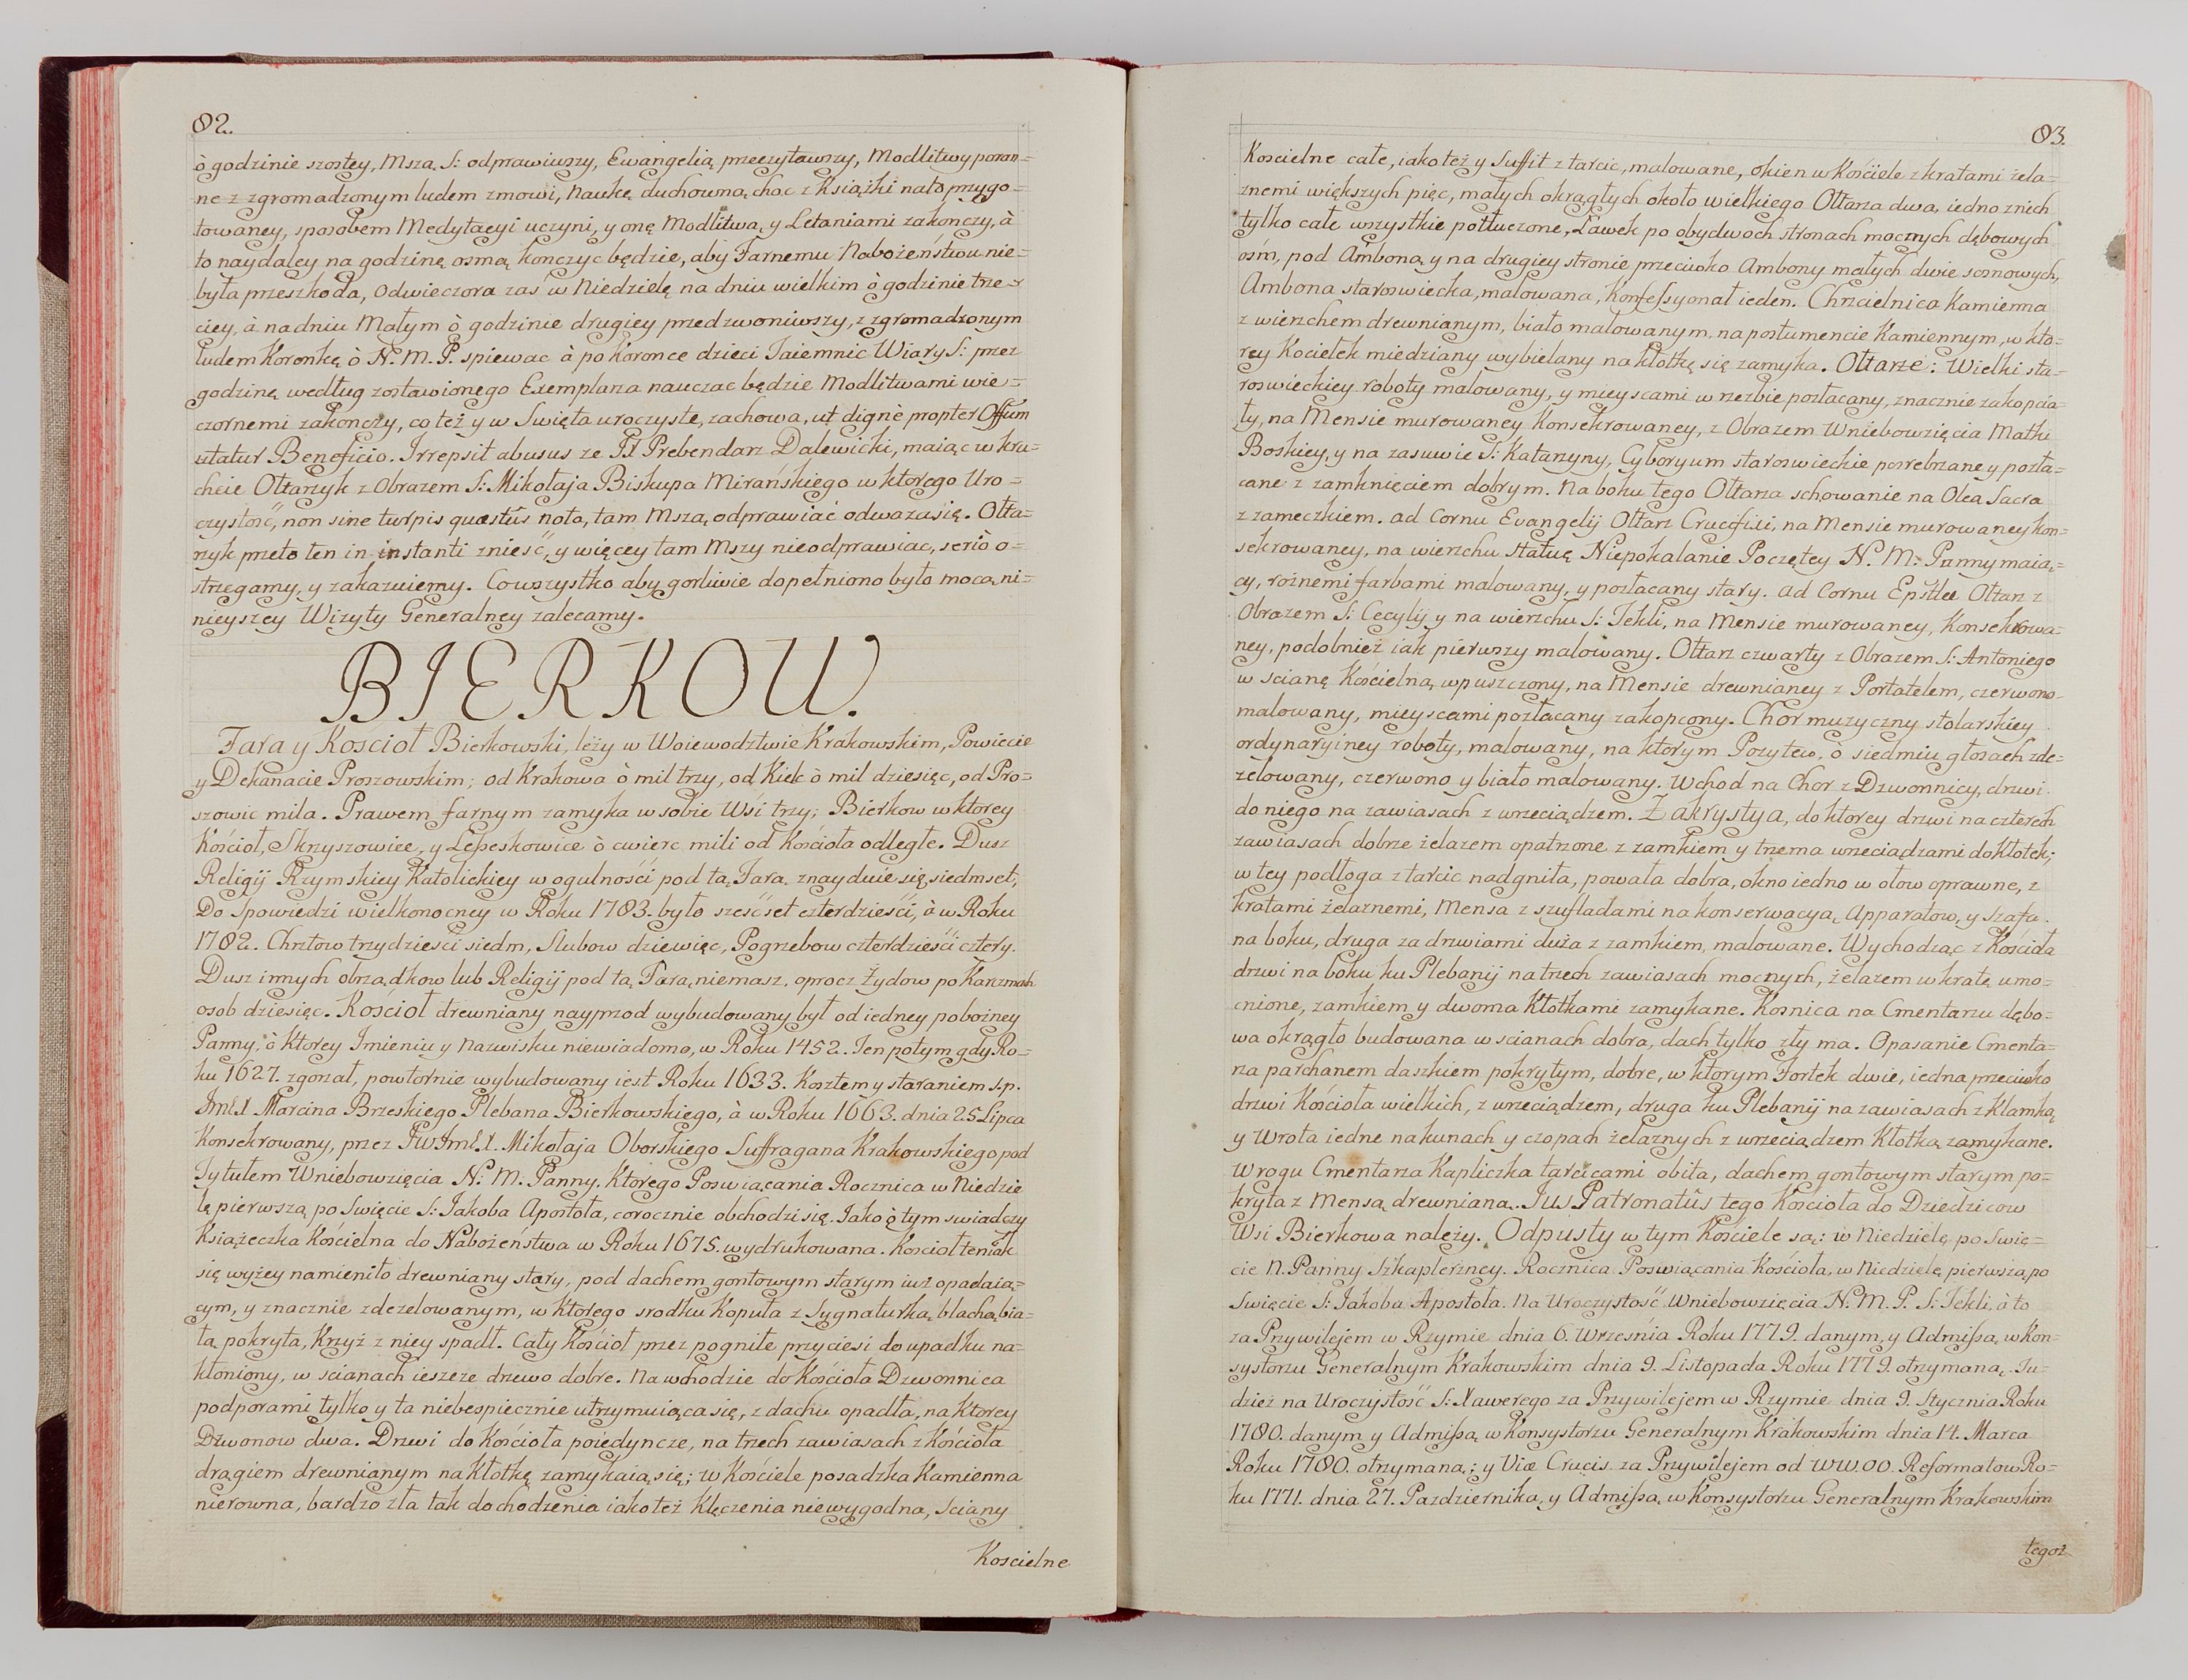 82.
ò godzinie szostey, Mszą S: odprawiwszy, Ewangelią przeczytawszy, Modlitwy poran=
ne z zgromadzonym ludem zmowi, Naukę duchowną, choc z Książki na to przygo=
towaney, sposobem Medytacyi uczyni, y onę Modlitwą, y Letaniami zakonczy, à
to naydaley na godzinę osmą konczyc będzie, aby Farnemu Nabożeństwu nie=
była przeszkoda, Odwieczora zas w Niedzielę na dniu wielkim ò godzinie trze=
ciey, à na dniu Małym ò godzinie drugiey przedzwoniwszy, z zgromadzonym
ludem Koronkę ò N. M. P. spiewac à po Koronce dzieci Taiemnic Wiary S: przez
godzinę według zostawionego Exemplarza nauczac będzie Modlitwami wie=
czornemi zakonczy, co też y w Swięta uroczyste, zachowa, ut dignè propter Offum
utatur Beneficio. Irrepsit abusus ze JX Prebendarz Dalewicki, maiąc w kru=
chcie Ołtarzyk z Obrazem S: Mikołaja Biskupa Mirańskiego w ktorego Uro=
czystość, non sine turpis quæstûs nota, tam Mszą odprawiać odważa się. Ołta=
rzyk przeto ten in instanti znieść, y więcey tam Mszy nieodprawiac, seriò o=
strzegamy, y zakazuiemy. Co wszystko aby gorliwie dopełniono było mocą ni=
nieyszey Wizyty Generalney zalecamy.
BIERKOW.
Fara y Kościoł Bierkowski, leży w Woiewodztwie Krakowskim, Powiecie
y Dekanacie Proszowskim; od Krakowa ò mil trzy, od Kielc ò mil dziesięc, od Pro=
szowic mila. Prawem farnym zamyka w sobie Wśi trzy; Bierkow w ktorey
Kościoł, Skrzyszowice, y Leszeskowice ò cwierc mili od Kościoła odległe. Dusz
Religij Rzymskiey Katolickiey w ogulnośći pod tą Farą znayduie się siedmset;
Do Spowiedzi wielkonocney w Roku 1783. było sześćset czterdzieśći, à w Roku
1782. Chrztow trzydzieści siedm, Slubow dziewięc, Pogrzebow czterdzieśći cztery.
Dusz innych obrządkow lub Religij pod tą Farą niemasz, oprocz Żydow po Karczmah
osob dziesięc. Kościoł drewniany nayprzod wybudowany był od iedney pobożney
Panny, ò ktorey Imieniu y Nazwisku niewiadomo, w Roku 1452. Ten potym gdy Ro=
ku 1627. zgorzał, powtornie wybudowany iest Roku 1633. Kosztem y staraniem s.p.
JmćX Marcina Brzeskiego Plebana Bierkowskiego, à w Roku 1663. dnia 25 Lipca
Konsekrowany, przez JWJmćX. Mikołaja Oborskiego Suffragana Krakowskiego pod
Tytułem Wniebowzięcia N. M. Panny. Ktorego Poswiącania Rocznica w Niedzie
lę pierwszą po Swięcie S: Jakoba Apostoła, corocznie obchodzi się. Jako ò tym swiadczy
Ksiąźeczka Kościelna do Nabożeństwa w Roku 1675. wydrukowana. Kościoł ten iak
się wyżey namieniło drewniany stary, pod dachem gontowym starym iuż opadaią=
cym, y znacznie zdezelowanym, w ktorego srodku Kopuła z Sygnaturką blachą bia=
łą pokryta, Krzyż z niey spadł. Cały Kościoł przez pogniłe przyciesi do upadku na=
kłoniony, w scianach ieszcze drzewo dobre. Na wchodzie do Kościoła Dzwonnica
podporami tylko y ta niebespiecznie utrzymuiąca się, z dachu opadła, na ktorey
Dzwonow dwa. Drzwi do Kościoła poiedyncze, na trzech zawiasach z Kościoła
drągiem drewnianym na Kłotkę zamykaią się; w Kościele posadzka Kamienna
nierowna, bardzo zła tak do chodzenia iako też Klęczenia niewygodna, Sciany
Koscielne
83.
Koscielne całe, iako też y Suffit z tarcic, malowane, okien w Kościele z kratami żela=
znemi większych pięc, małych okrągłych około wielkiego Ołtarza dwa, iedno z nich
tylko całe wszystkie potłuczone, Ławek po obydwoch stronach mocnych dębowych
ośm, pod Amboną y na drugiey stronie przeciwko Ambony małych dwie sosnowych,
Ambona staroswiecka, malowana, Konfessyonał ieden. Chrzcielnica Kamienna
z wierzchem drewnianym, biało malowanym, na postumencie Kamiennym, w kto=
rey Kociełek miedziany wybielany na kłotkę się zamyka. Ołtarze: Wielki sta=
roswieckiey roboty malowany, y mieyscami w rzezbie pozłacany, znacznie zakopcia=
ły, na Mensie murowaney Konsekrowaney, z Obrazem Wniebowzięcia Matki
Boskiey, y na zasuwie S: Katarzyny, Cyboryum staroswieckie posrebrzane y pozła=
cane z zamknięciem dobrym. Na boku tego Ołtarza schowanie na Olea Sacra
z zameczkiem. ad Cornu Evangelij Ołtarz Crucifixi, na Mensie murowaney kon=
sekrowaney, na wierzchu Statuę Niepokalanie Poczętey N. M. Panny maią=
cy, rożnemi farbami malowany, y pozłacany stary. ad Cornu Epstlæ Ołtarz z
Obrazem S: Cecylij y na wierzchu S: Tekli, na Mensie murowaney, Konsekrowa=
ney, podobnież iak pierwszy malowany. Ołtarz czwarty z Obrazem S: Antoniego
w scianę Kościelną wpuszczony, na Mensie drewnianey z Portatelem, czerwono
malowany, mieyscami pozłacany zakopcony. Chor muzyczny stolarskiey
ordynaryiney roboty, malowany, na ktorym Pozytew, ò siedmiu głosach zde=
zelowany, czerwono y biało malowany. Wchod na Chor z Dzwonnicy, drzwi
do niego na zawiasach z wrzeciądzem. Zakrystya, do ktorey drzwi na czterech
zawiasach dobrze żelazem opatrzone z zamkiem y trzema wrzeciądzami do Kłotek;
w tey podłoga z tarcic nadgniła, powała dobra, okno iedno w ołow oprawne, z
kratami żelaznemi, Mensa z szufladami na konserwacyą Apparatow, y Szafa
na boku, druga za drzwiami duża z zamkiem, malowane. Wychodząc z Kościoła
drzwi na boku ku Plebanij na trzech zawiasach mocnych, żelazem w kratę umo=
cnione, zamkiem y dwoma Kłotkami zamykane. Kosnica na Cmentarzu dębo=
wa okrągło budowana w scianach dobra, dach tylko zły ma. Opasanie Cmenta=
rza parchanem daszkiem pokrytym, dobre, w ktorym Fortek dwie, iedna przeciwko
drzwi Kościoła wielkich, z wrzeciądzem, druga ku Plebanij na zawiasach z Klamką
y Wrota iedne na kunach y czopach żelaznych z wrzeciądzem Kłotką zamykane.
W rogu Cmentarza Kapliczka tarcicami obita, dachem gontowym starym po=
kryta z Mensą drewnianą. Jus Patronatûs tego Kościoła do Dziedzicow
Wsi Bierkowa należy. Odpusty w tym Kościele są: w Niedzielę po Swię=
cie N. Panny Szkaplerzney. Rocznica Poswiącania Kościoła, w Niedzielę pierwszą po
Swięcie S: Jakoba Apostoła. Na Uroczystość Wniebowzięcia N. M. P. S: Tekli, à to
za Przywilejem w Rzymie dnia 6. Wrzesnia Roku 1779. danym, y Admissą w Kon=
systorzu Generalnym Krakowskim dnia 9. Listopada Roku 1779. otrzymaną. Tu=
dzież na Uroczystość S: Xawerego za Przywilejem w Rzymie dnia 9. Stycznia Roku
1780. danym y Admissą w Konsystorzu Generalnym Krakowskim dnia 14. Marca
Roku 1780. otrzymaną; y Viæ Crucis za Przywilejem od WW.OO. Reformatow Ro=
ku 1771. dnia 27. Pazdziernika, y Admissą w Konsystorzu Generalnym Krakowskim
tegoż